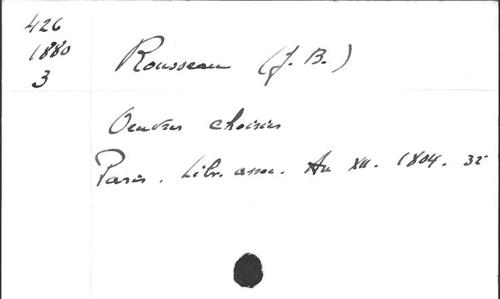 426
1880
3
Rousseau (J. B.)
Oeuvres choisies
Paris. Libr. assoc. An XII. 1804. 32